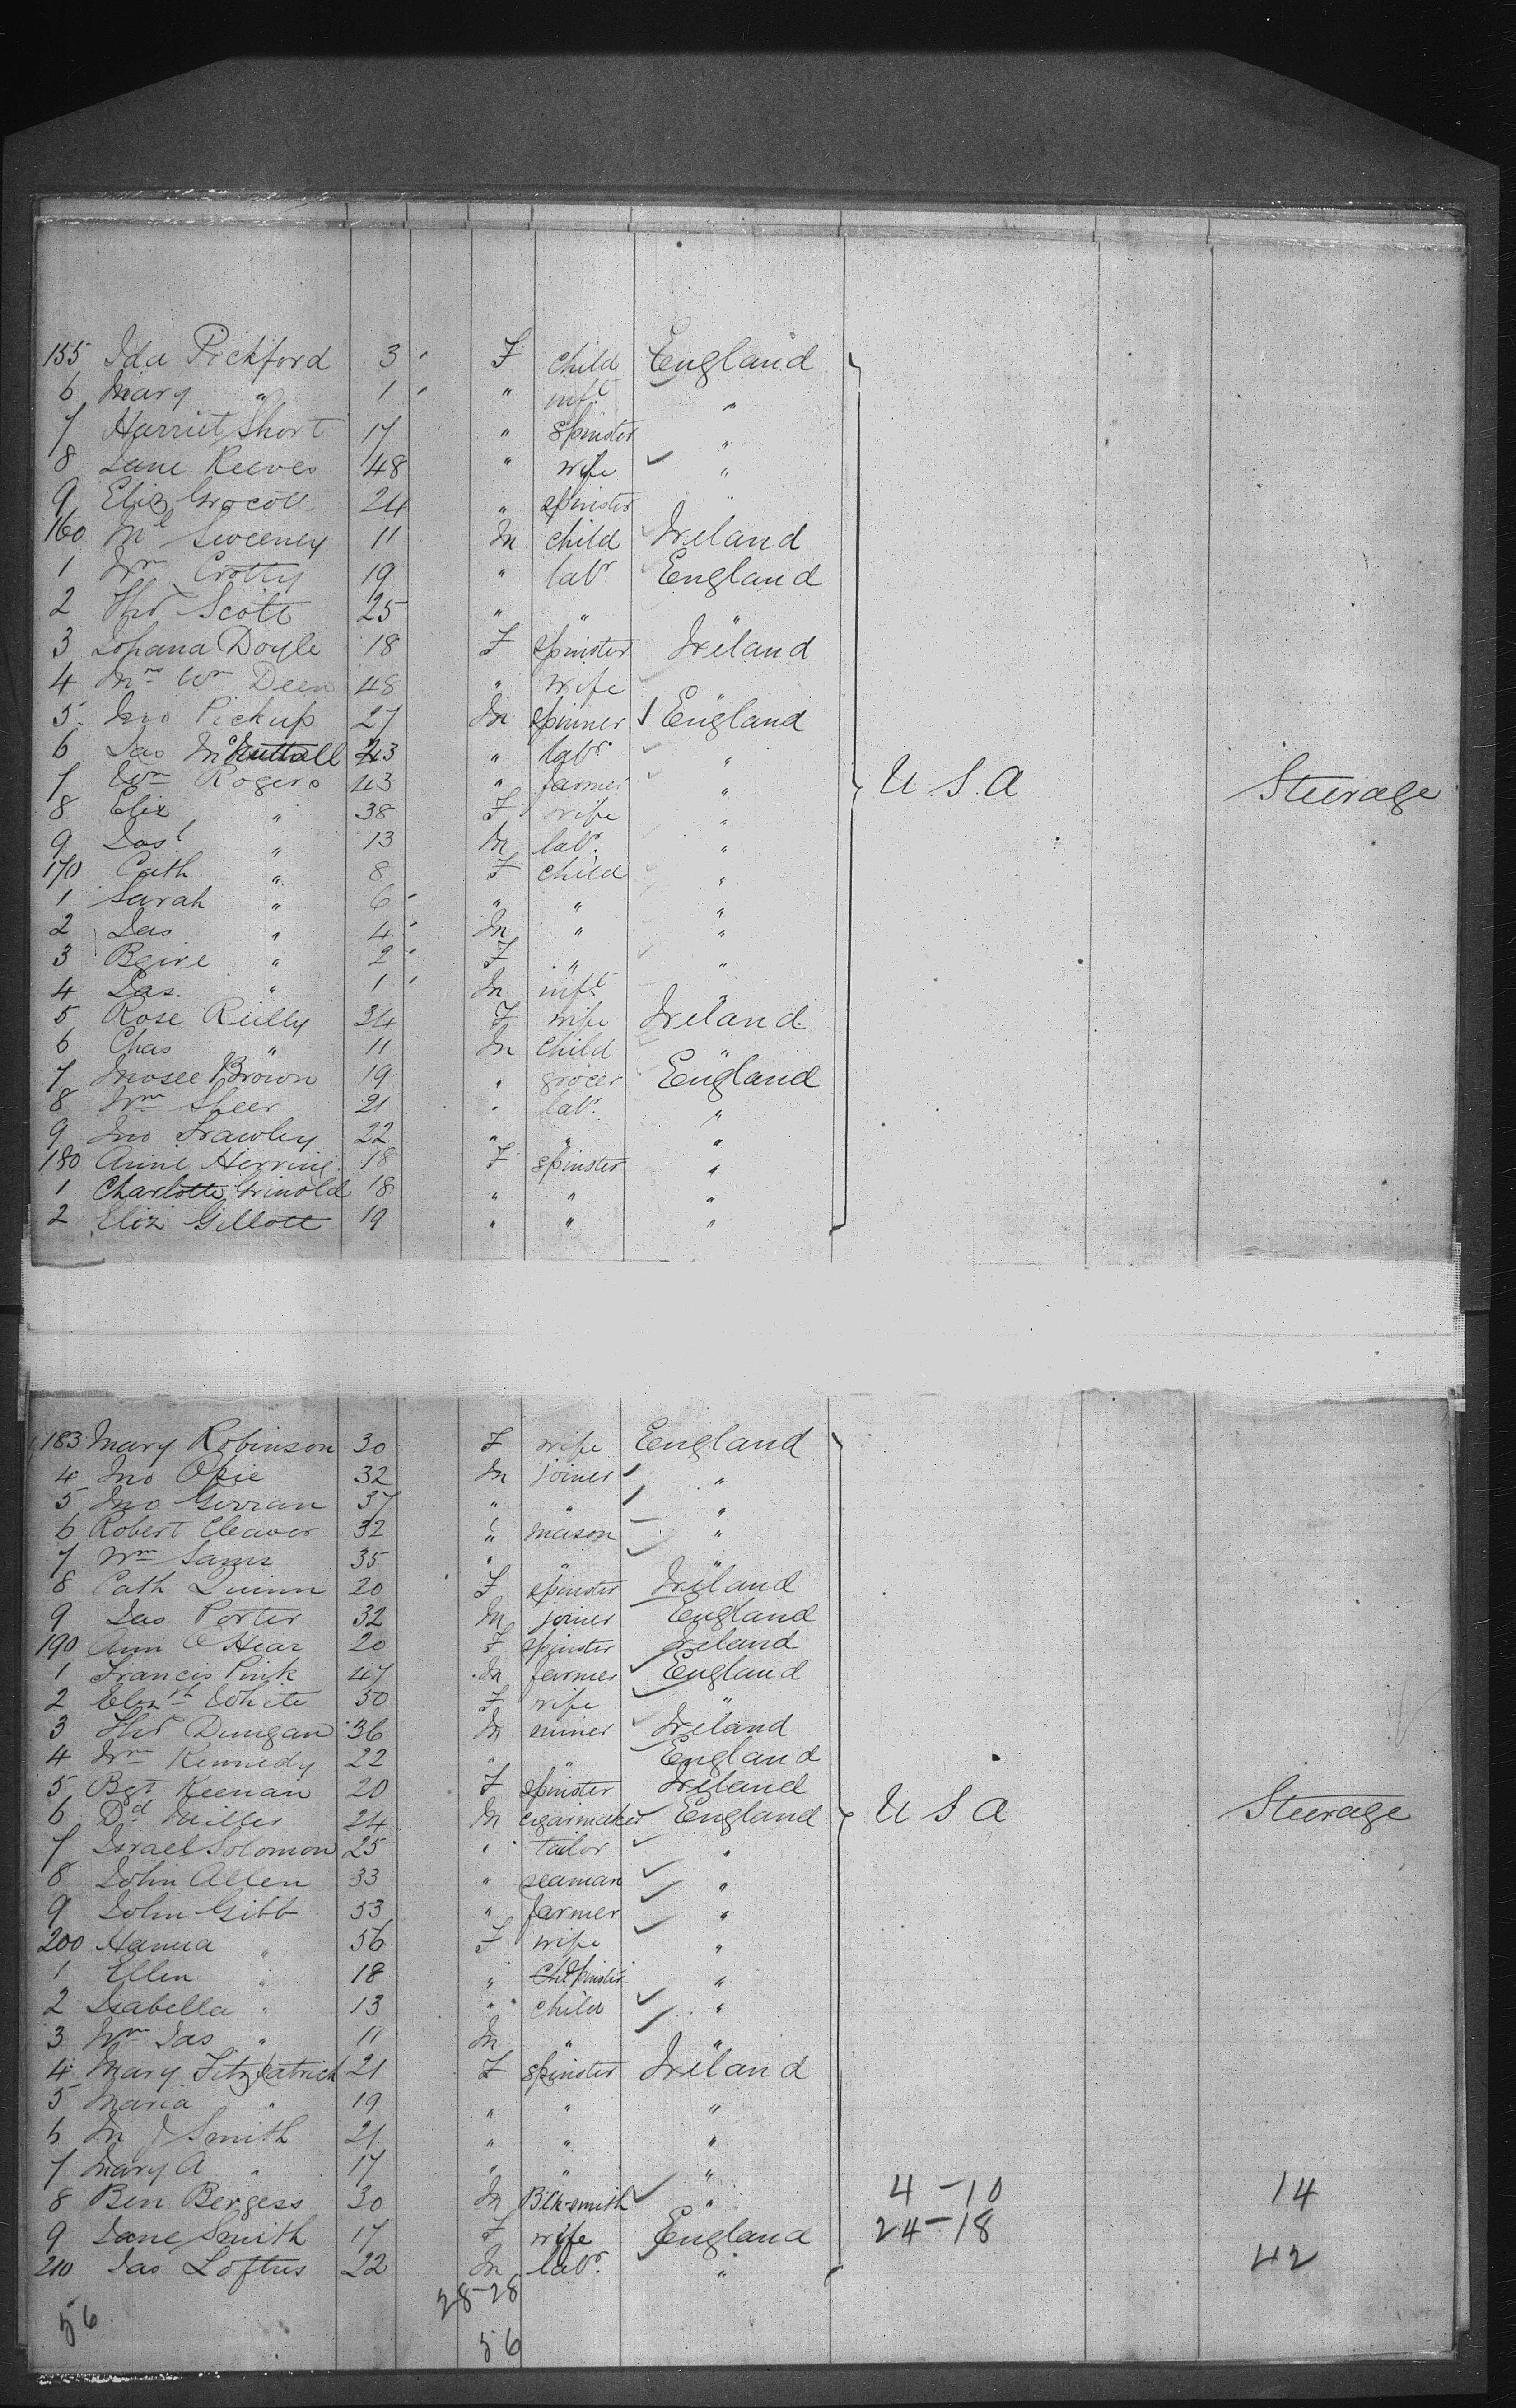 155 Ida Pickford 3 F child England
6 Mary " 1 " inft "
7 Harriet Short 17 " spinster "
8 Jane Reeves 48 " wife "
9 Eliz Grocott 24 " spinster "
160 Ml Sweeney 11 M child Ireland
1 Wm Crotty 19 " labr England
2 Thos Scott 25 " " "
3 Johana Doyle 18 F spinster Ireland
4 Mrs Wm Deen 48 " wife "
5 Jno Pickup 27 M spinner England
6 Jas 43 " labr "
7 Wm Rogers 43 " farmer " U.S.A Steerage
8 Eliz " 38 F wife "
9 Jos " 13 M labr "
170 Cath " 8 F child "
1 Sarah " 6 " " "
2 Jas " 4 M " "
3 " 2 F " "
4 Jas. " 1 M inft "
5 Rose Reilly 34 F wife Ireland
6 Chas " 11 M child "
7 Brown 19 " grocer England
8 Wm Sheer 21 " labr. "
9 Jno Frawley 22 " " "
180 Anne Herring 18 F spinster "
1 Charlotte Grinold 18 " " "
2 Eliz Gillott 19 " " "
183 Mary Robinson 30 F wife England
4 Jno Opie 32 M joiner "
5 Jno Gerran 37 " " "
6 Robert Cleaver 32 " mason "
7 Wm Sams 35 " " "
8 Cath Quinn 20 F spinster Ireland
9 Jas Porter 32 M joiner England
190 Ann O'Hear 20 F spinster Ireland
1 Francis Pink 47 M farmer England
2 Elizth White 50 F wife "
3 Thos Dungan 36 M miner Ireland
4 Wm Kennedy 22 " " England
5 Bgt Keenan 20 F spinster Ireland
6 Dd Miller 24 M cigarmaker England U S A Steerage
7 Israel Solomon 25 " tailor "
8 John Allen 33 " seaman "
9 John Gibb 53 " farmer "
200 Hanna " 56 F wife "
1 Ellen " 18 " spinster "
2 Isabella " 13 " child "
3 Wm Jas " 11 M " "
4 Mary Fitzpatrick 21 F spinster Ireland
5 Maria " 19 " " "
6 M J Smith 21 " " "
7 Mary A " 17 " " "
8 Ben Bergess 30 M Blk-smith " 4-10 14
9 Jane Smith 17 F wife England 24-18
210 Jas Loftus 22 M labr. " 42
28-28
56
56